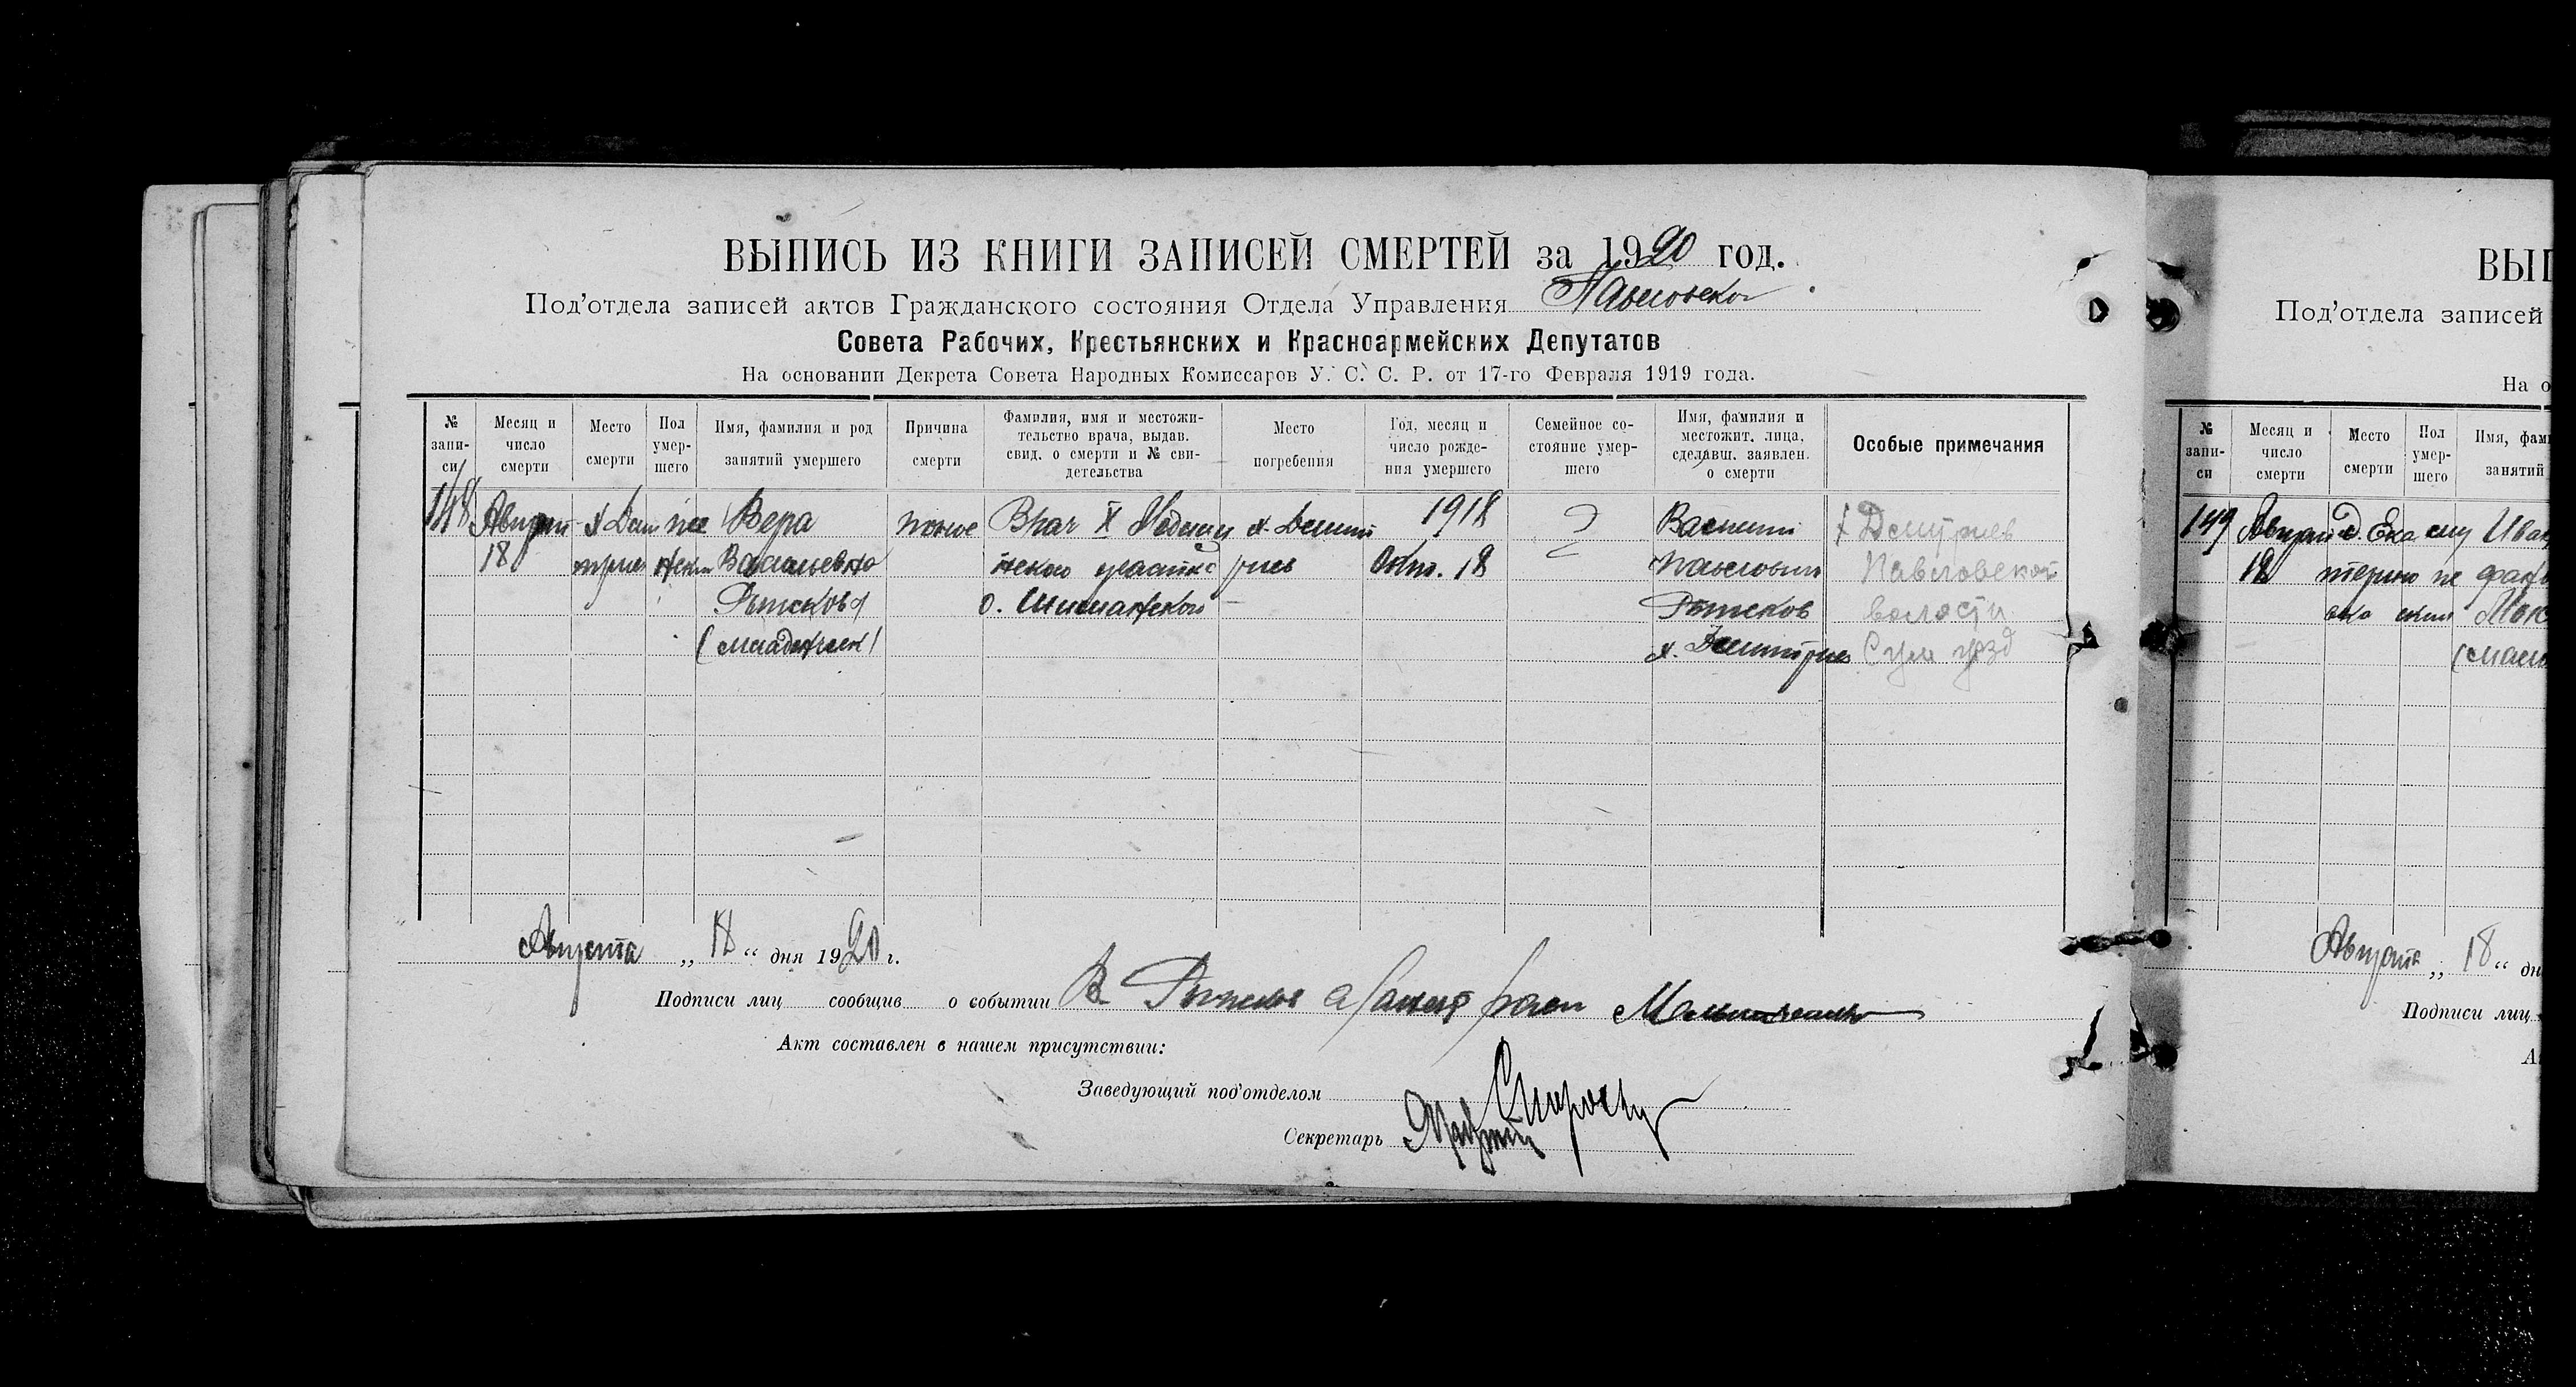 ВЫПИСЬ ИЗ КНИГИ ЗАПИСЕЙ СМЕРТЕЙ за 1920 год.
Под'отдела записей актов Гражданского состояния Отдела Управления Павловског
Совета Рабочих, Крестьянских и Красноармейских Депутатов
На основании Декрета Совета Народных Комиссаров У. С. С. Р. от 17-го Февраля 1919 года.
№ запи-си
Месяц и число смерти
Место смерти
Пол умер-шего
Имя, фамилия и род занятий умершего
Причина смерти
Фамилия, имя и местожи-тельство врача, выдав. свид. о смерти и № сви-детельства
Место погребения
Год, месяц и число рожде-ния умершего
Семейное со-стояние умер-шего
Имя, фамилия и местожит. лица, сделавш. заявлен. о смерти
Особые примечания
148
Август
18
х Дми
триев
Вера
Васильевна
Рытикова
(младенец)
понос
Врач X Медицин
нского участка
о. Шиманского
х. Дмит
риев
1918
Окт. 18
Василий
Павлович
Рытиков
х. Дмитриев
х Дмитриев
Павловской
волости
Сум уезд
Августа „18“ дня 1920 г.
Подписи лиц сообщив о событии В
Акт составлен в нашем присутствии:
Заведующий под'отделом
Секретарь
ВЫП
Под'отдела записей
На о
№ запи-си
Месяц и число смерти
Место смерти
Пол умер-шего
Имя, фам
занятий
149
Август
18
д. Ека
терино
вка
Ива
Августа „18“ дн
Подписи лиц
А